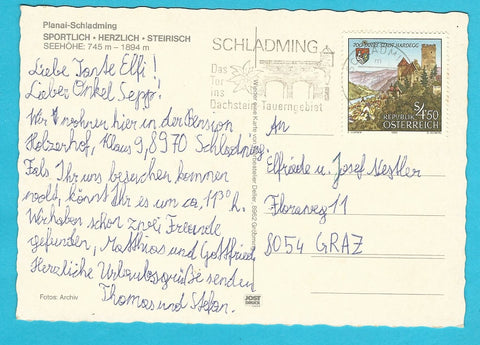 Planai-Schladming
SPORTLICH • HERZLICH • STEIRISCH
SEEHÖHE: 745 m - 1894 m
Liebe Tante Elfi!
Lieber Onkel Sepp!
Wir wohnen hier in der Pension
Holzerhof, Klaus 9, 8970 Schladming.
Fals Ihr uns besuchen kommen
wollt, könnt Ihr es um ca. 11³⁰ h.
Wir haben schon zwei Freunde
gefunden, Matthias und Gottfried
Herzliche Urlaubsgrüße senden
Thomas und Stefan.
Fotos: Archiv
SCHLADMING
Das
Tor
ins
Dachstein-Tauerngebiet
JOST
DRUCK
700 JAHRE STADT HARDEGG
S 4.50
REPUBLIK
ÖSTERREICH
An
Elfriede u. Josef Nestler
Floraweg 11
8054 GRAZ